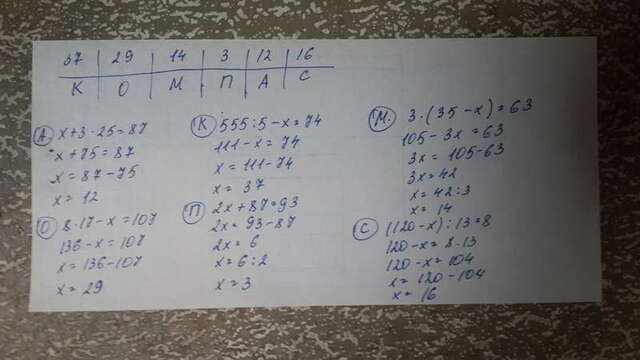 37 | 29 | 14 | 3 | 12 | 16
К | О | М | П | А | С
А x+3·25=87
x+75=87
x=87-75
x=12
О 8·17-x=107
136-x=107
x=136-107
x=29
К 555:5-x=74
111-x=74
x=111-74
x=37
П 2x+87=93
2x=93-87
2x=6
x=6:2
x=3
М. 3·(35-x)=63
105-3x=63
3x=105-63
3x=42
x=42:3
x=14
С (120-x):13=8
120-x=8·13
120-x=104
x=120-104
x=16